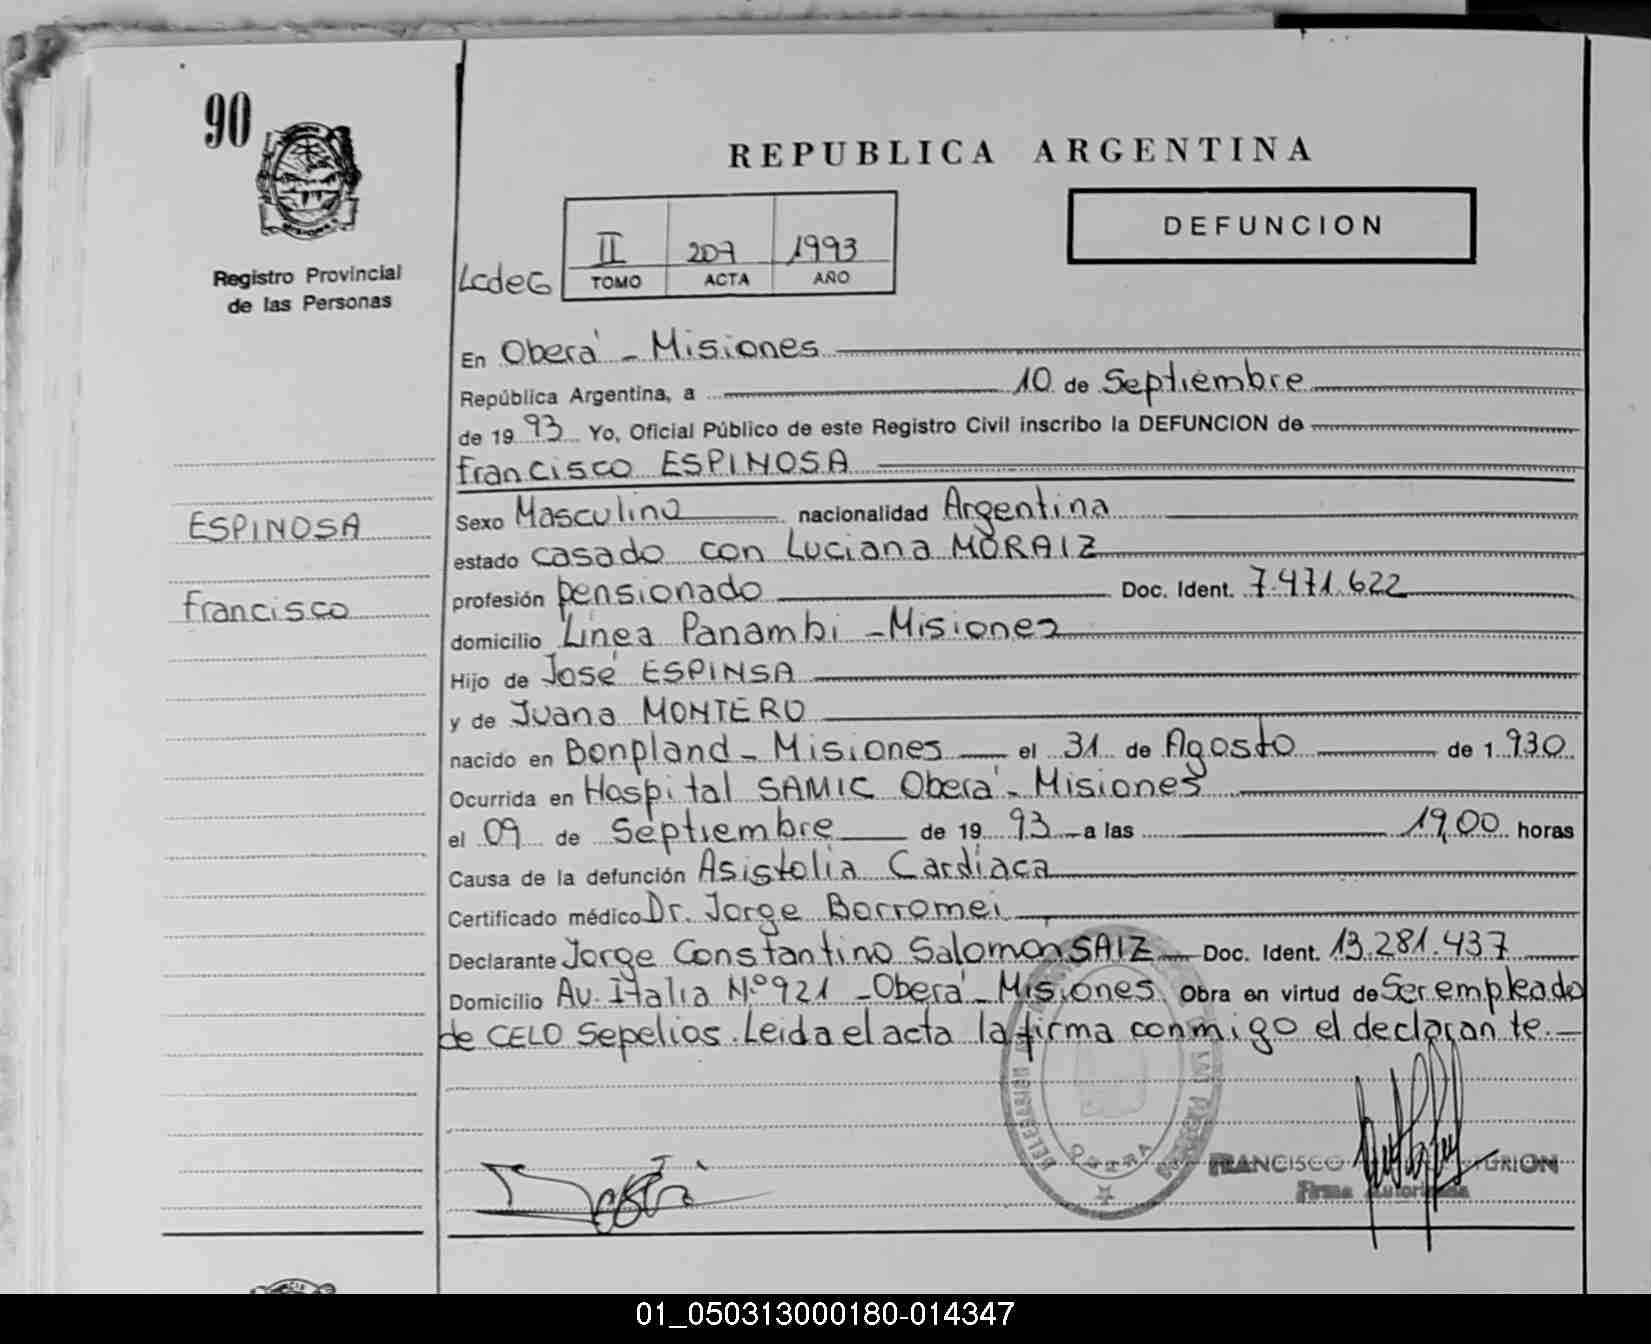 90
REPUBLICA ARGENTINA
DEFUNCION
II 207 1993
TOMO ACTA AÑO
LcdeG
Registro Provincial
de las Personas
En Oberá - Misiones
República Argentina, a 10 de Septiembre
de 1993 Yo, Oficial Público de este Registro Civil inscribo la DEFUNCION de
Francisco ESPINOSA
ESPINOSA
Francisco
Sexo Masculino nacionalidad Argentina
estado casado con Luciana MORAIZ
profesión pensionado Doc. Ident. 7.471.622
domicilio Línea Panambi - Misiones
Hijo de José ESPINSA
y de Juana MONTERO
nacido en Bonpland - Misiones el 31 de Agosto de 1.930
Ocurrida en Hospital SAMIC Oberá - Misiones
el 09 de Septiembre de 1993 a las 19,00 horas
Causa de la defunción Asistolia Cardíaca
Certificado médico Dr. Jorge Borromei
Declarante Jorge Constantino Salomón SAIZ Doc. Ident. 13.281.437
Domicilio Av. Italia Nº 921 - Oberá - Misiones Obra en virtud de Ser empleado
de CELO Sepelios. Leida el acta la firma conmigo el declarante.
FRANCISCO
Firma Autorizada
01_050313000180-014347